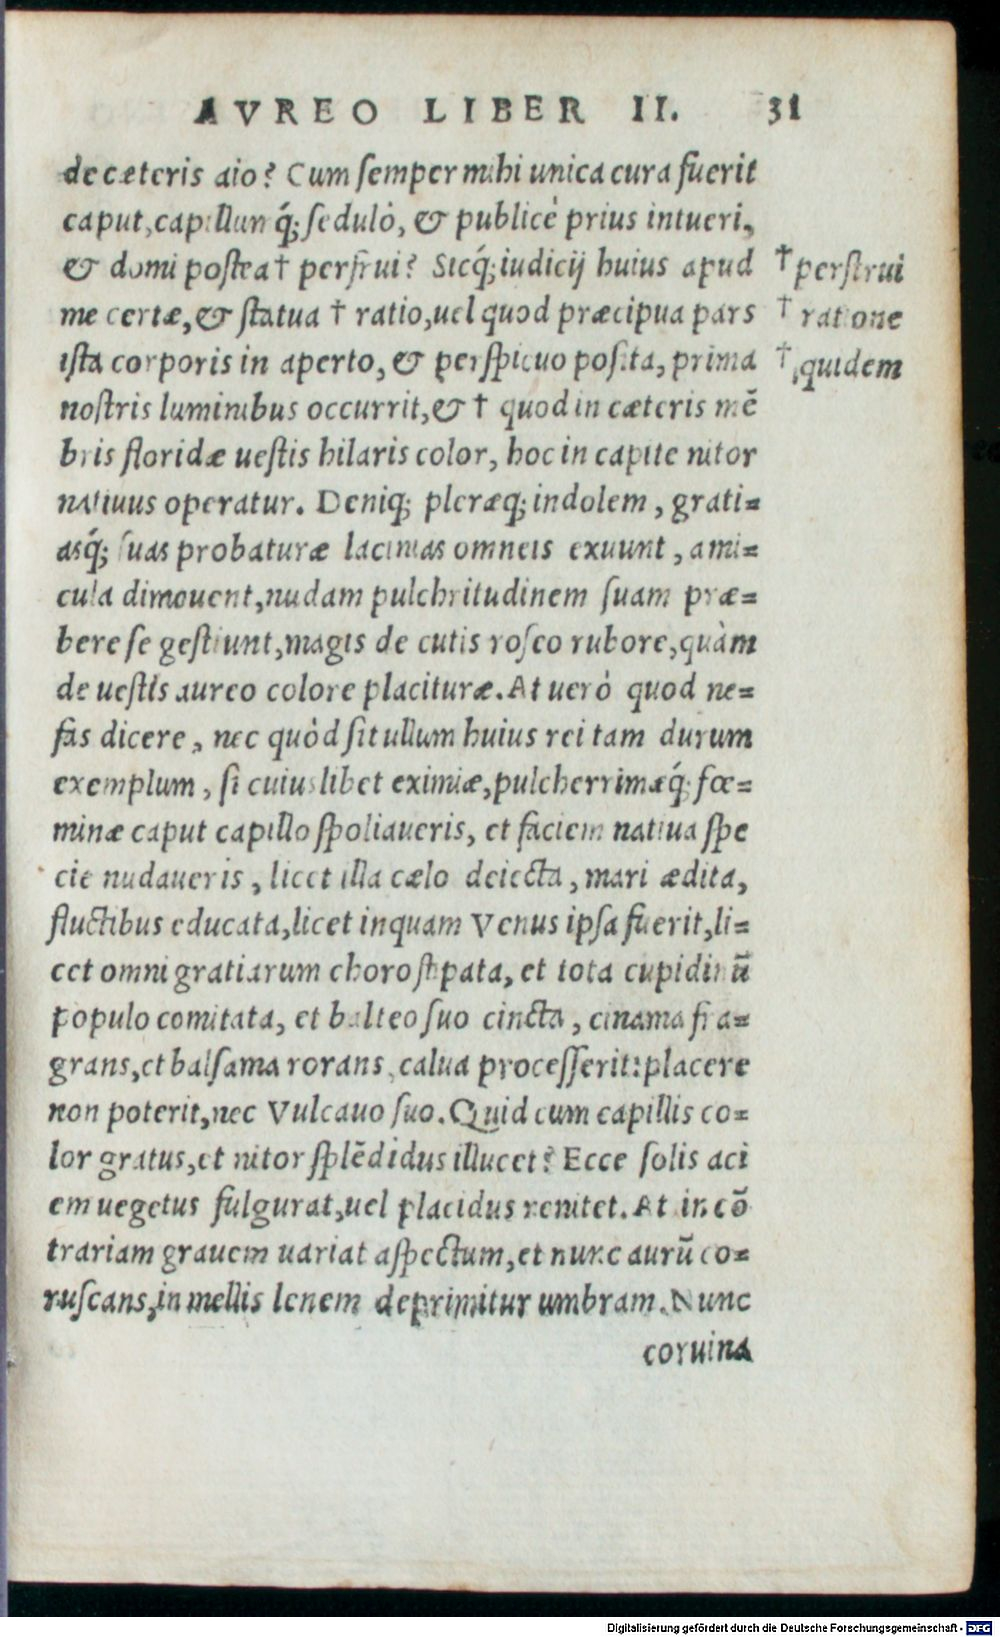 AVREO LIBER II. 31
de cæteris aio? Cum semper mihi unica cura fuerit
caput, capillumq́; sedulò, & publicè prius intueri,
& domi postea † perfrui? Sicq́; iudicij huius apud
† perstrui
me certæ, & statua † ratio, uel quod præcipua pars
† ratione
ista corporis in aperto, & perspicuo posita, prima
† quidem
nostris luminibus occurrit, & † quod in cæteris mē
bris floridæ uestis hilaris color, hoc in capite nitor
natiuus operatur. Deniq; pleræq; indolem, grati=
asq́; suas probaturæ lacinias omneis exuunt, ami=
cula dimouent, nudam pulchritudinem suam præ=
bere se gestiunt, magis de cutis roseo rubore, quàm
de uestis aureo colore placituræ. At uerò quod ne=
fas dicere, nec quòd sit ullum huius rei tam durum
exemplum, si cuiuslibet eximiæ, pulcherrimæq́; fœ=
minæ caput capillo spoliaueris, et faciem natiua spe
cie nudaueris, licet illa cælo deiecta, mari ædita,
fluctibus educata, licet inquam Venus ipsa fuerit, li=
cet omni gratiarum choro stipata, et tota cupidinū
populo comitata, et balteo suo cincta, cinama fra=
grans, et balsama rorans, calua processerit: placere
non poterit, nec Vulcauo suo. Quid cum capillis co=
lor gratus, et nitor splēdidus illucet? Ecce solis aci
em uegetus fulgurat, uel placidus renitet. At in cō
trariam grauem uariat aspectum, et nunc aurū co=
ruscans, in mellis lenem deprimitur umbram. Nunc
coruina
Digitalisierung gefördert durch die Deutsche Forschungsgemeinschaft - DFG